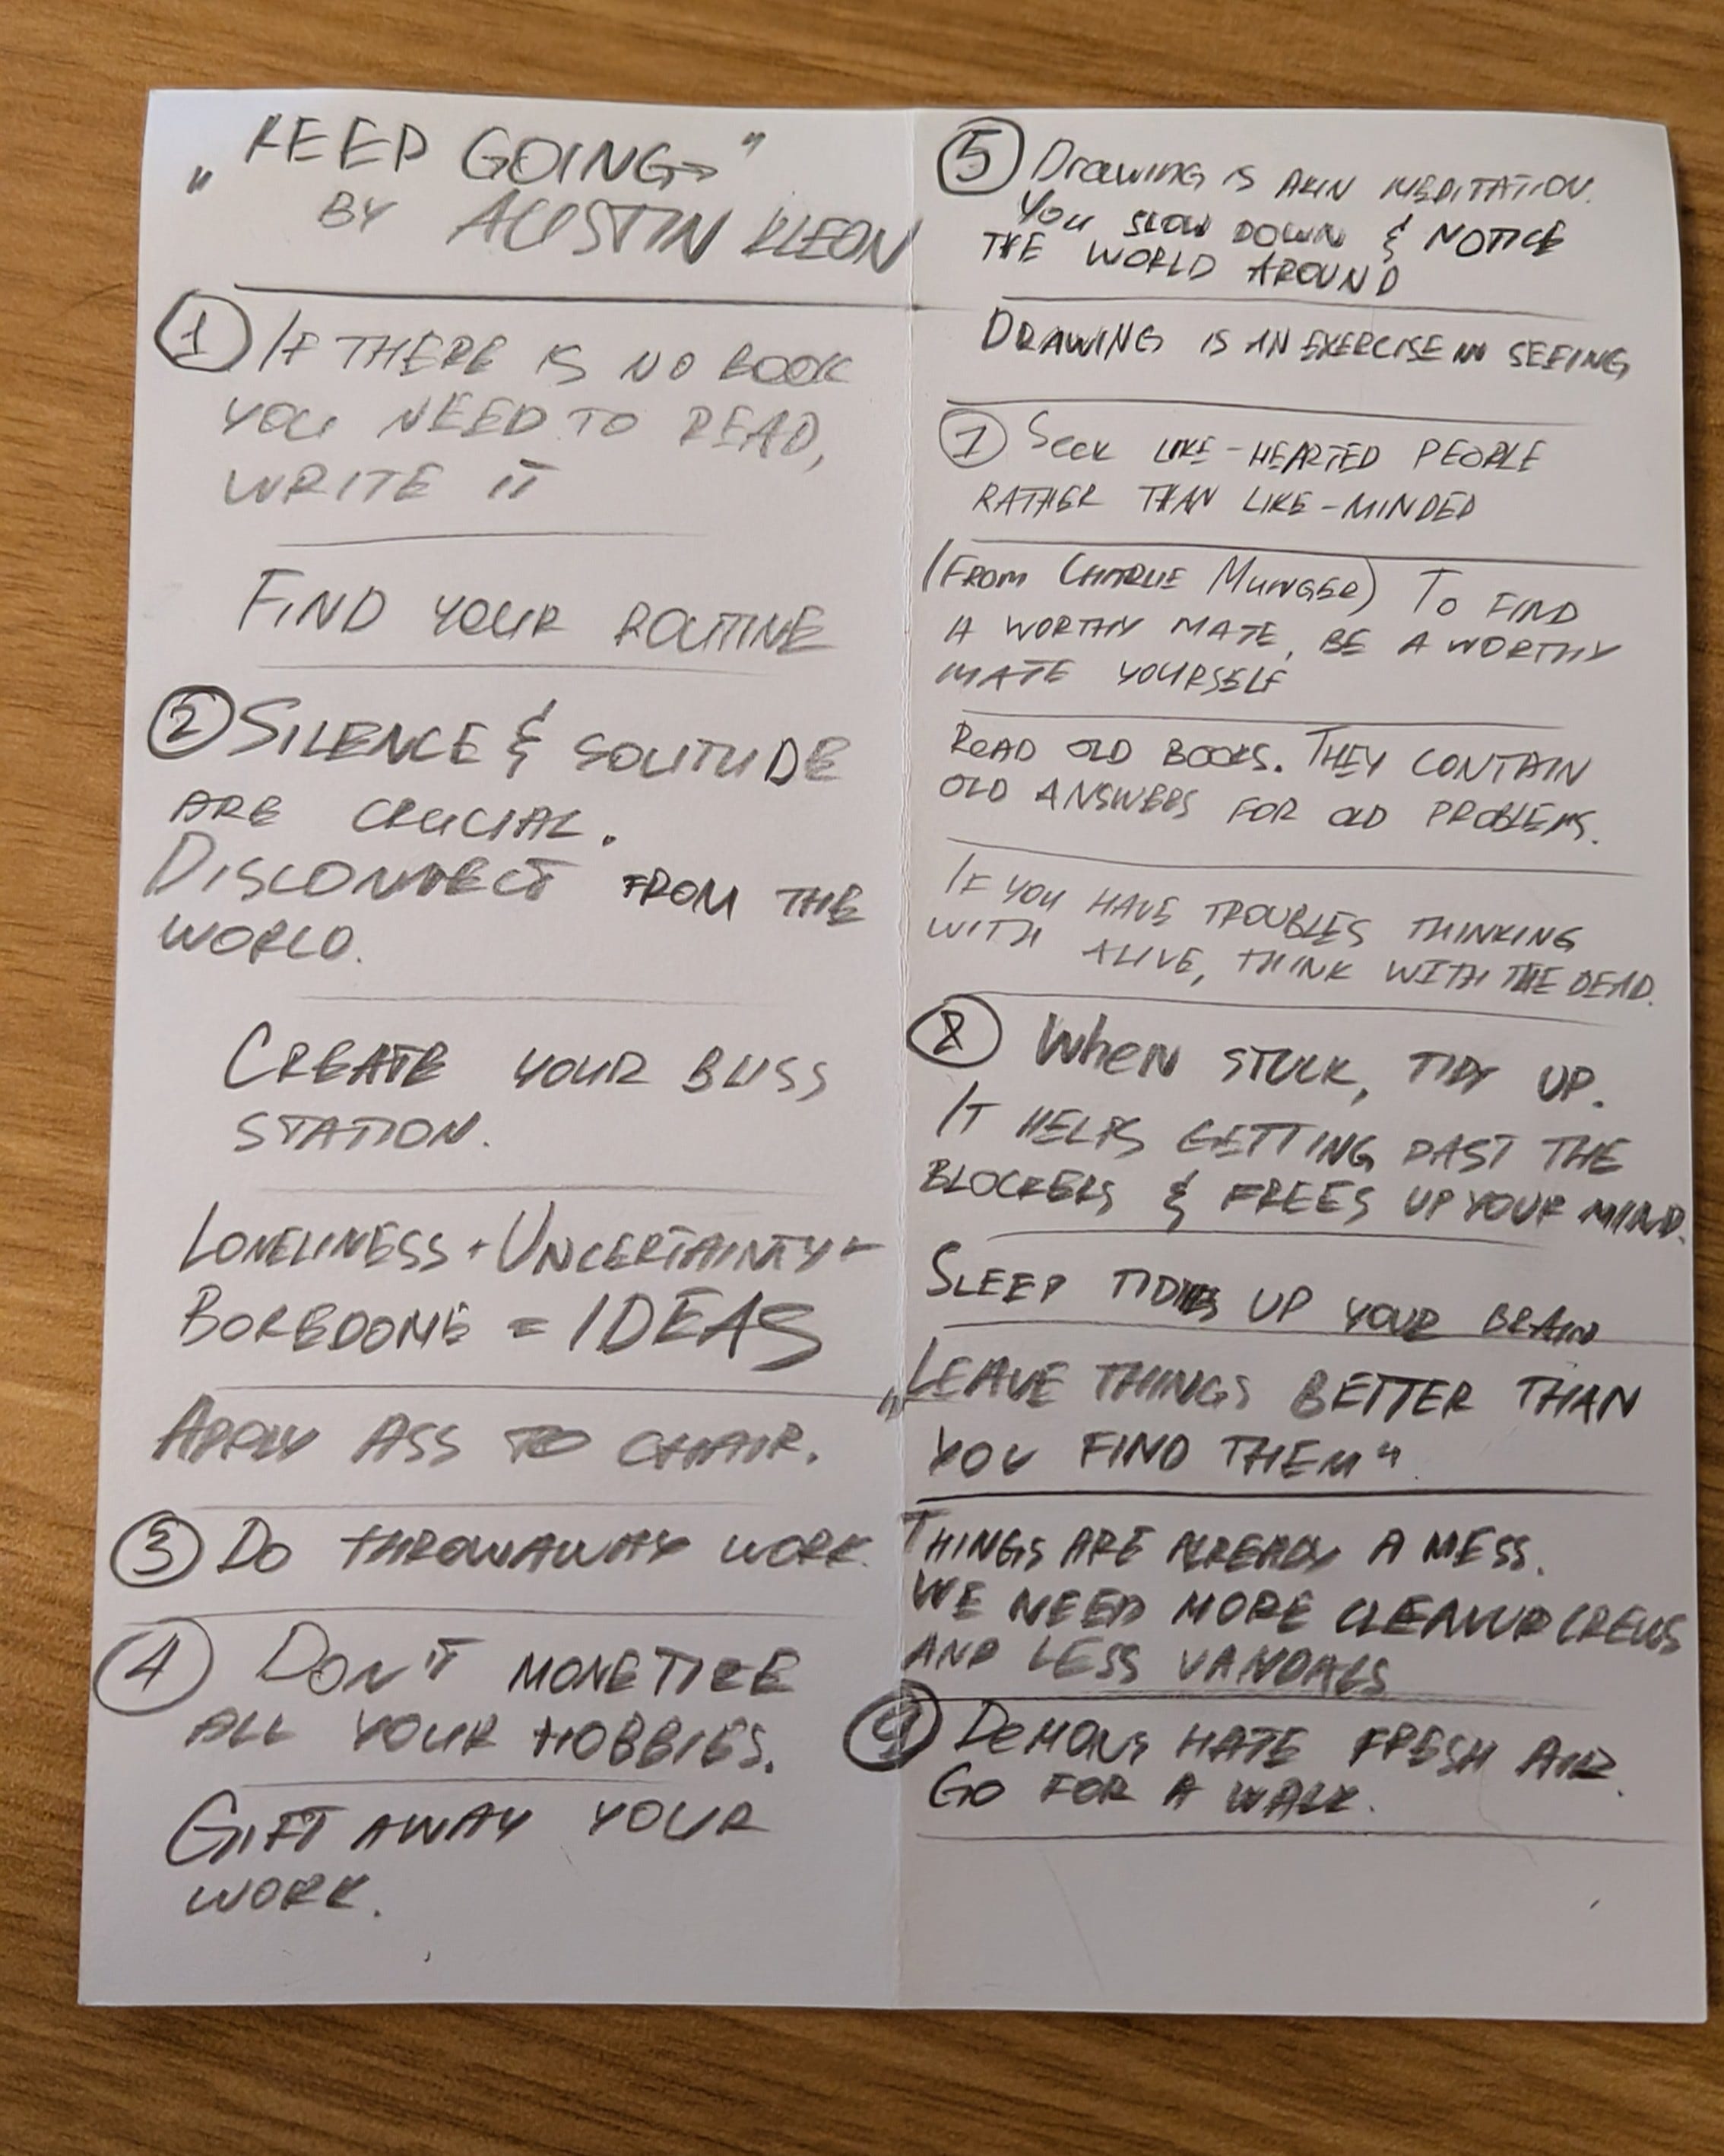 „KEEP GOING"
BY AUSTIN KLEON
① IF THERE IS NO BOOK
YOU NEED TO READ,
WRITE IT
FIND YOUR ROUTINE
② SILENCE & SOLITUDE
ARE CRUCIAL.
DISCONNECT FROM THE
WORLD.
CREATE YOUR BLISS
STATION.
LONELINESS + UNCERTAINTY +
BOREDOME = IDEAS
APPLY ASS TO CHAIR.
③ DO THROWAWAY WORK.
④ DON'T MONETIZE
ALL YOUR HOBBIES.
GIFT AWAY YOUR
WORK.
⑤ DRAWING IS AKIN MEDITATION.
YOU SLOW DOWN & NOTICE
THE WORLD AROUND
DRAWING IS AN EXERCISE IN SEEING
⑦ SEEK LIKE-HEARTED PEOPLE
RATHER THAN LIKE-MINDED
(FROM CHARLIE MUNGER) TO FIND
A WORTHY MATE, BE A WORTHY
MATE YOURSELF
READ OLD BOOKS. THEY CONTAIN
OLD ANSWERS FOR OLD PROBLEMS.
IF YOU HAVE TROUBLES THINKING
WITH ALIVE, THINK WITH THE DEAD.
⑧ WHEN STUCK, TIDY UP.
IT HELPS GETTING PAST THE
BLOCKERS & FREES UP YOUR MIND.
SLEEP TIDIES UP YOUR BRAIN
„LEAVE THINGS BETTER THAN
YOU FIND THEM"
THINGS ARE ALREADY A MESS.
WE NEED MORE CLEANUP CREWS
AND LESS VANDALS
⑨ DEMONS HATE FRESH AIR.
GO FOR A WALK.